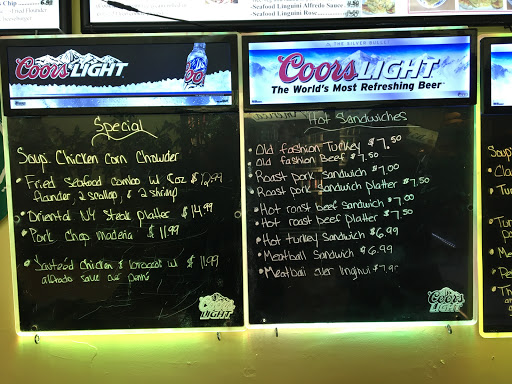 -Seafood Linguini Alfredo Sauce
-Seafood Linguini Rose
Coors LIGHT
Special
Soup: Chicken Corn Chowder
• Fried Seafood combo w/
flounder, 2 scallop, & 2 shrimp
• Oriental NY Steak platter $14.99
• Pork Chop maderia $11.99
• Sauteed Chicken & broccoli w/ $11.99
alfredo sauce over penne
Coors LIGHT
THE SILVER BULLET
Coors LIGHT
The World's Most Refreshing Beer
Hot Sandwiches
• Old fashion Turkey $7.50
• Old fashion Beef $7.50
• Roast pork Sandwich $7.00
• Roast pork Sandwich platter $7.50
• Hot roast beef Sandwich $7.00
• Hot roast beef platter $7.50
• Hot turkey Sandwich $6.99
• Meatball Sandwich $6.99
• Meatball over linguini
Coors LIGHT